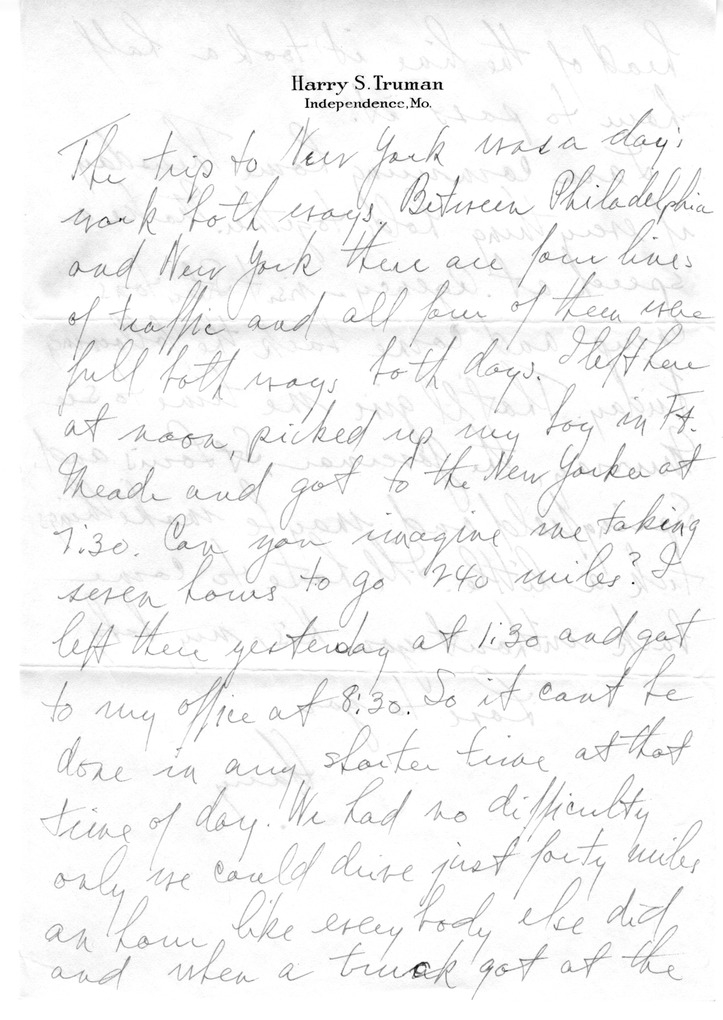 Harry S. Truman
Independence, Mo.
The trip to New York was a day's
work both ways. Between Philadelphia
and New York there are four lines
of traffic and all four of them were
full both ways both days. I left here
at noon, picked up my boy in Ft.
Meade and got to the New Yorker at
7:30. Can you imagine me taking
seven hours to go 240 miles? I
left there yesterday at 1:30 and got
to my office at 8:30. So it cant be
done in any shorter time at that
time of day. We had no difficulty
only we could drive just forty miles
an hour like every body else did
and when a truck got at the